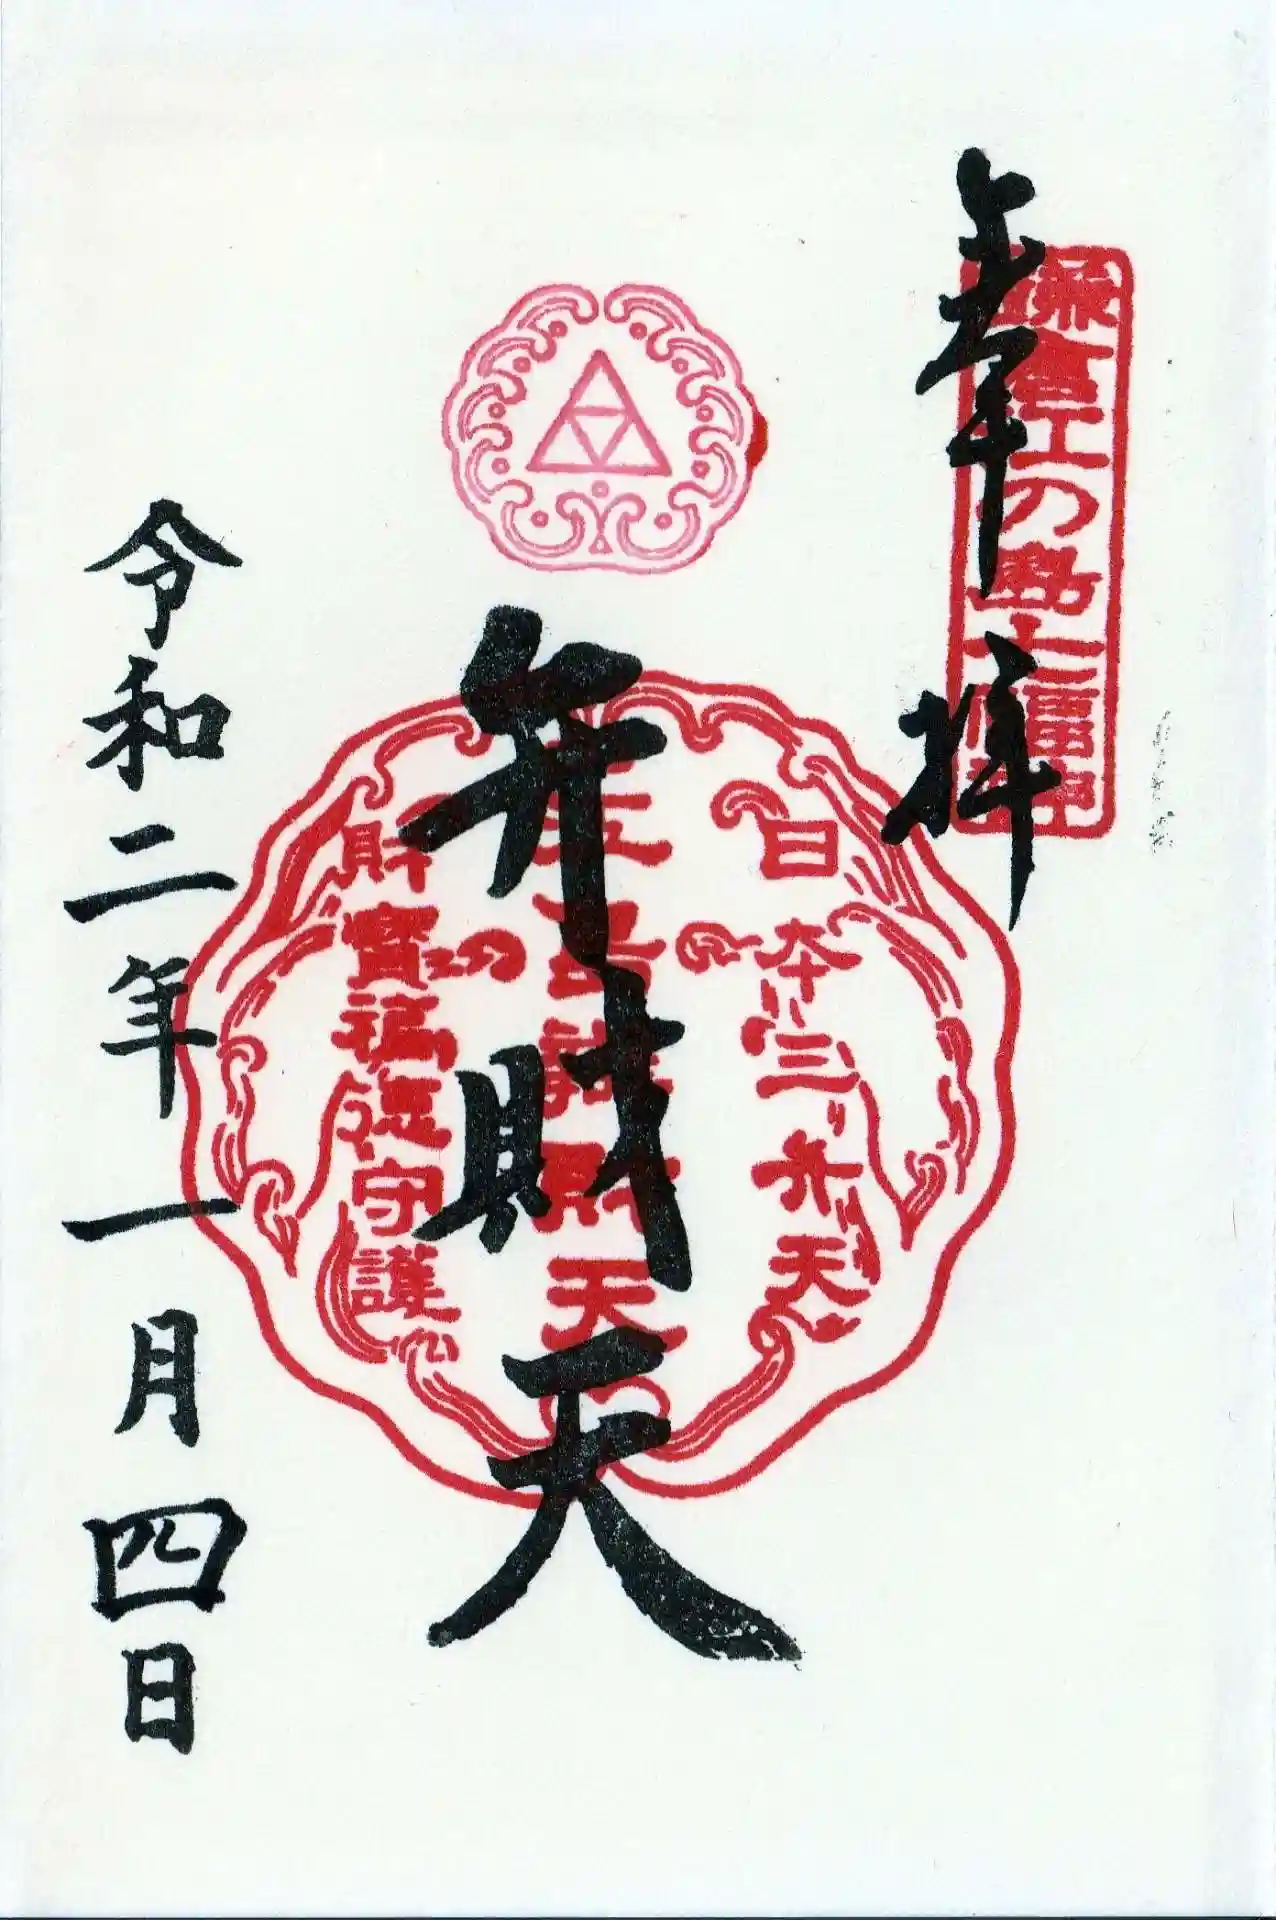 奉拝
鎌倉江の島七福神
日本三弁天
財天
財寶福德守護
弁財天
令和二年一月四日